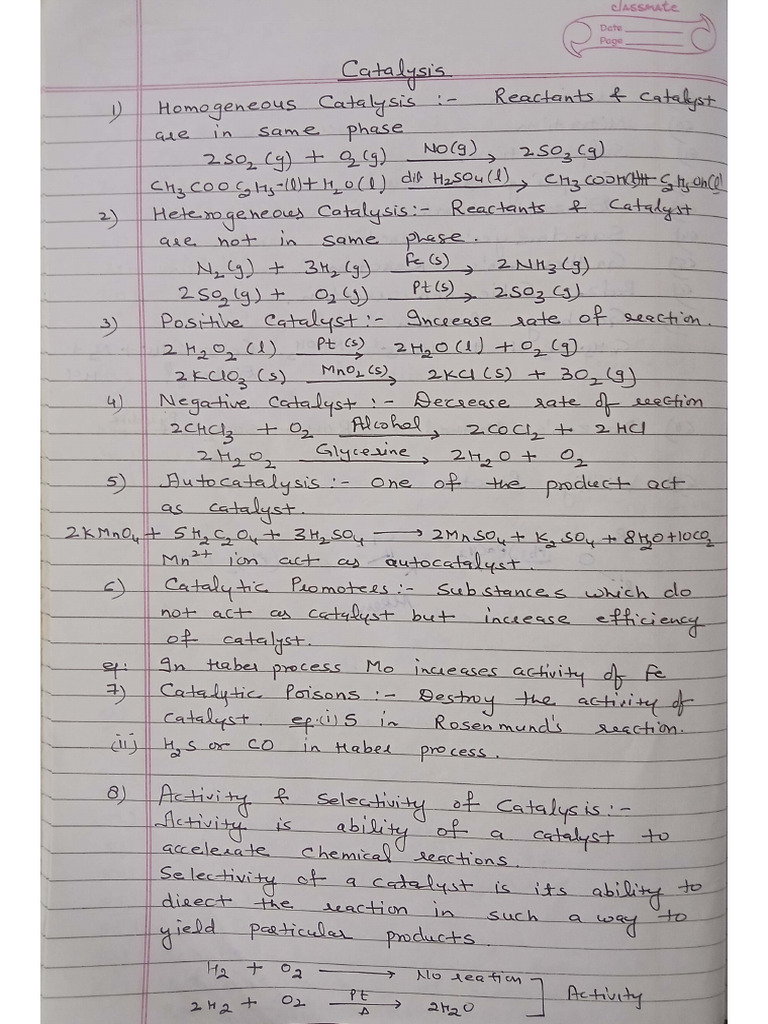 classmate
Date
Page
Catalysis
1) Homogeneous Catalysis :- Reactants & Catalyst
are in same phase
2SO₂(g) + O₂(g) NO(g)→ 2SO₃(g)
CH₃COOC₂H₅(l) + H₂O(l) dil H₂SO₄(l)→ CH₃COOH(l) + C₂H₅OH(l)
2) Heterogeneous Catalysis:- Reactants & Catalyst
are not in same phase.
N₂(g) + 3H₂(g) Fe(s)→ 2NH₃(g)
2SO₂(g) + O₂(g) Pt(s)→ 2SO₃(g)
3) Positive Catalyst:- Increase rate of reaction.
2H₂O₂(l) Pt(s)→ 2H₂O(l) + O₂(g)
2KClO₃(s) MnO₂(s)→ 2KCl(s) + 3O₂(g)
4) Negative Catalyst :- Decrease rate of reection
2CHCl₃ + O₂ Alcohol→ 2COCl₂ + 2HCl
2H₂O₂ Glycerine→ 2H₂O + O₂
5) Autocatalysis :- One of the product act
as catalyst.
2KMnO₄ + 5H₂C₂O₄ + 3H₂SO₄ → 2MnSO₄ + K₂SO₄ + 8H₂O + 10CO₂
Mn²⁺ ion act as autocatalyst.
6) Catalytic Promoters:- Substances which do
not act as catalyst but increase efficiency
of catalyst.
eg: In Haber process Mo increases activity of Fe
7) Catalytic Poisons :- Destroy the activity of
Catalyst. eg.(i) S in Rosenmund's reaction.
(ii) H₂S or CO in Haber process.
8) Activity & Selectivity of Catalysis:-
Activity is ability of a catalyst to
accelerate chemical reactions.
Selectivity of a catalyst is its ability to
direct the reaction in such a way to
yield particular products.
H₂ + O₂ → No reation
2H₂ + O₂ Pt→Δ 2H₂O ] Activity